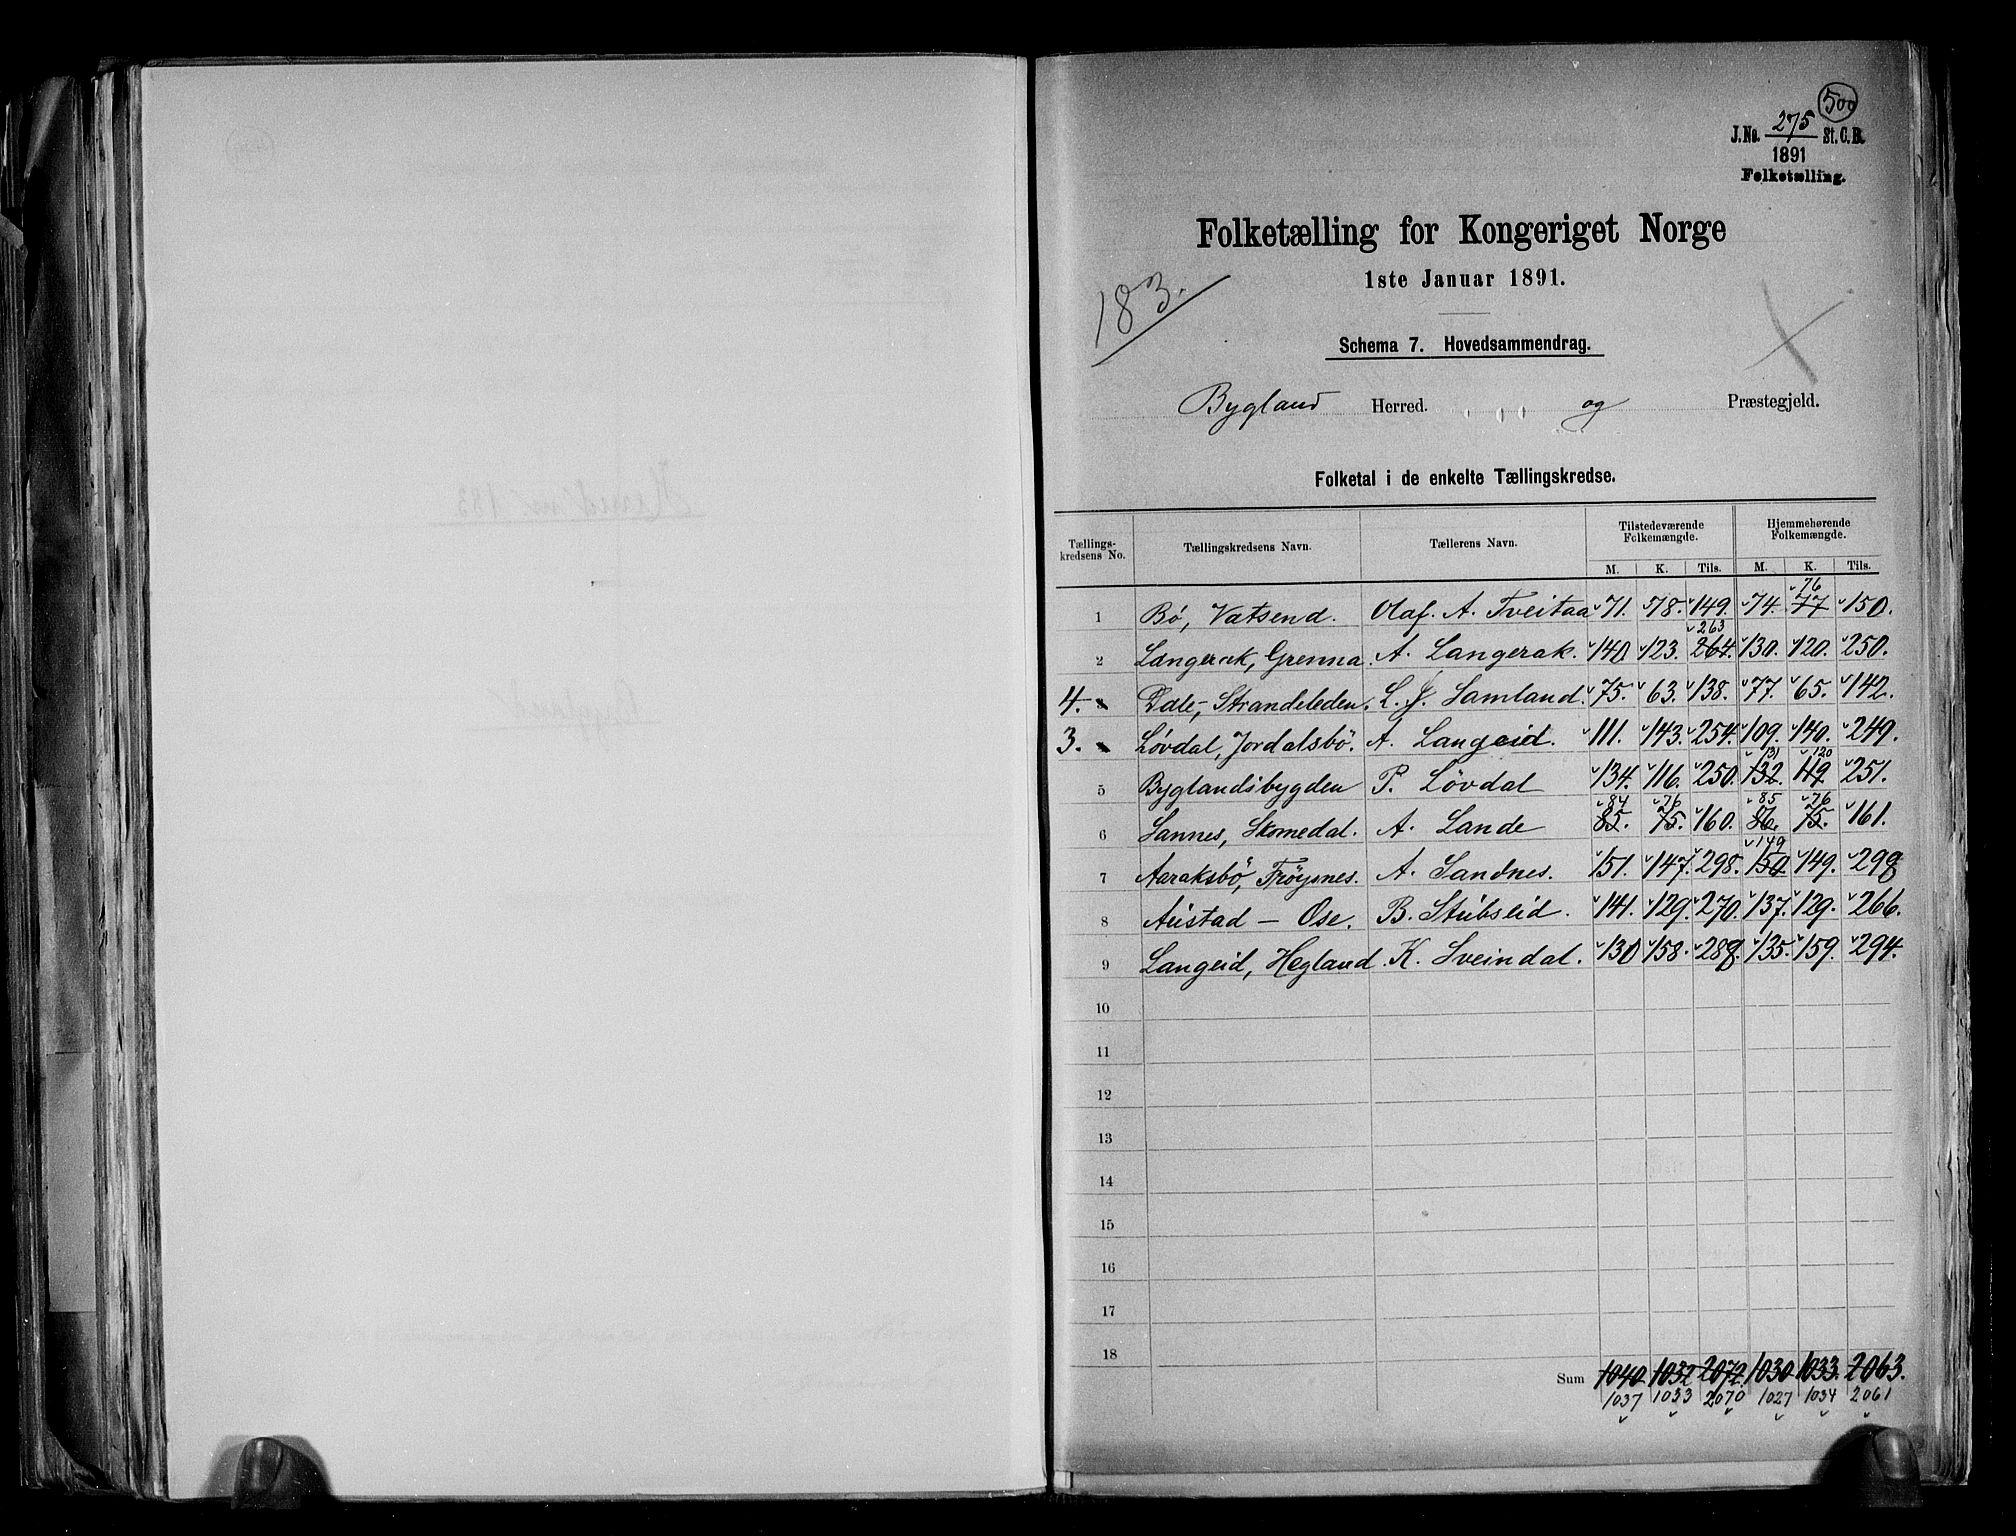 500
J.No. 275 St.C.B.
1891
Folketælling.
Folketælling for Kongeriget Norge
1ste Januar 1891.
183.
Schema 7. Hovedsammendrag.
Bygland Herred. og Præstegjeld.
Folketal i de enkelte Tællingskredse.
Tællingskredsens No. Tællingskredsens Navn. Tællerens Navn. Tilstedeværende Folkemængde. Hjemmehørende Folkemængde.
M. K. Tils. M. K. Tils.
76
1 Bø, Vatsend. Olaf. A. Tveitaa 71. 78. 149. 74. 77 150.
263
2 Langerak, Grenna. A. Langerak. 140 123. 264. 130. 120. 250.
4. Dale, Strandeleden. L. J. Samland. 75. 63. 138. 77. 65. 142.
3. Løvdal, Jordalsbö. A. Langeid. 111. 143. 254. 109. 140. 249.
131 120
5 Byglandsbygden P. Lövdal 134. 116. 250. 132. 119 251.
84 76 85 76
6 Sannes, Skomedal. A. Lande 85. 75. 160. 86. 75. 161.
149
7 Aaraksbö, Tröysnes. A. Sandnes. 151. 147. 298. 150 149. 298
8 Austad - Ose. B. Stubseid. 141. 129. 270. 137. 129. 266.
9 Langeid, Hegland. K. Sveindal. 130 158. 288. 135. 159. 294.
10
11
12
13
14
15
16
17
18
Sum 1040 1032 2072. 1030 1033. 2063.
1037 1033 2070 1027 1034 2061